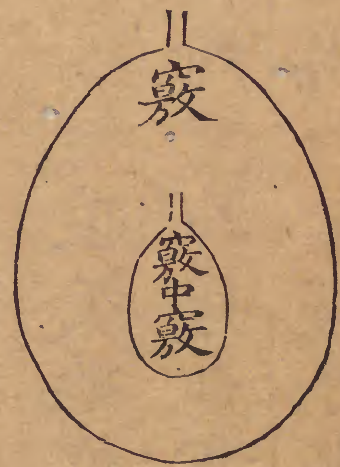 竅
竅中竅